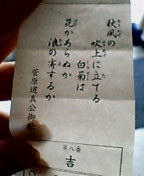 秋風の
吹上に立てる
白菊は
花かあらぬか
浪の寄するか
菅原道真公御歌
第八番
吉